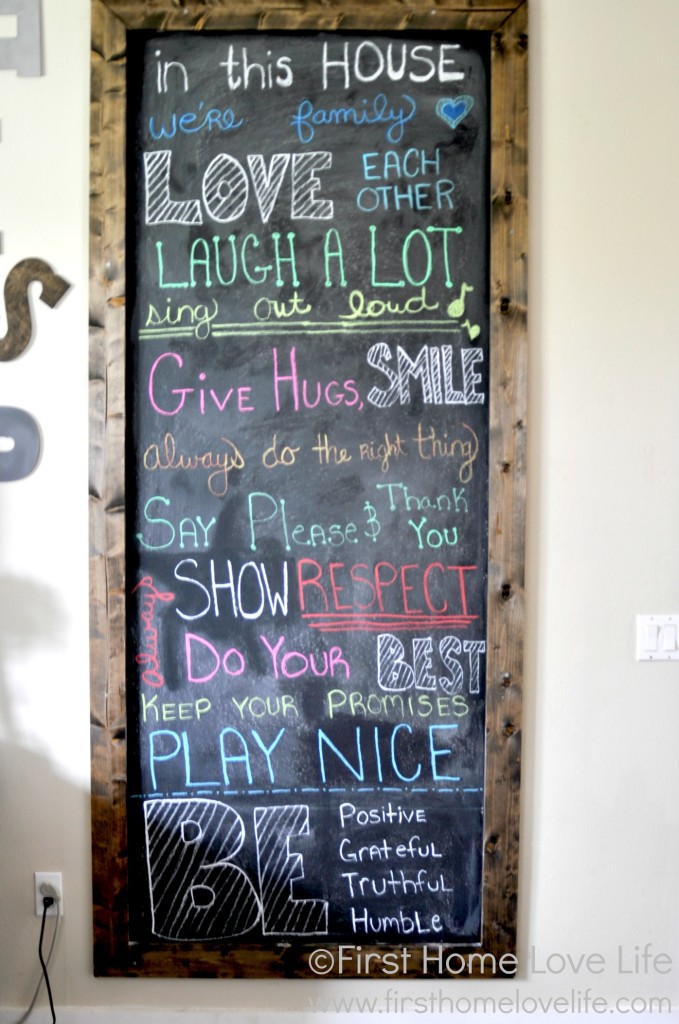 in this HOUSE
we're family
LOVE EACH OTHER
LAUGH A LOT
sing out loud
GIVE HUGS, SMILE
always do the right thing
SAY PLEASE & Thank You
always SHOW RESPECT
DO YOUR BEST
KEEP YOUR PROMISES
PLAY NICE
BE Positive
Grateful
Truthful
Humble
©First Home Love Life
www.firsthomelovelife.com